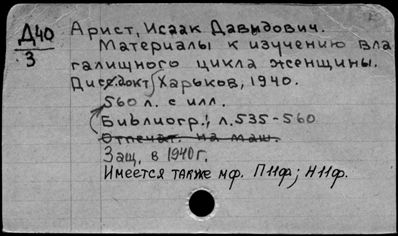 Д40
3
Арист, Исаак Давыдович.
Материалы к изучению вла
галищного цикла женщины.
Дис. докт. Харьков, 1940.
560 л. с илл.
Библиогр.: л. 535-560
Отпечат. на маш.
Защ. в 1940 г.
Имеется также мф. П11ф; Н11ф.